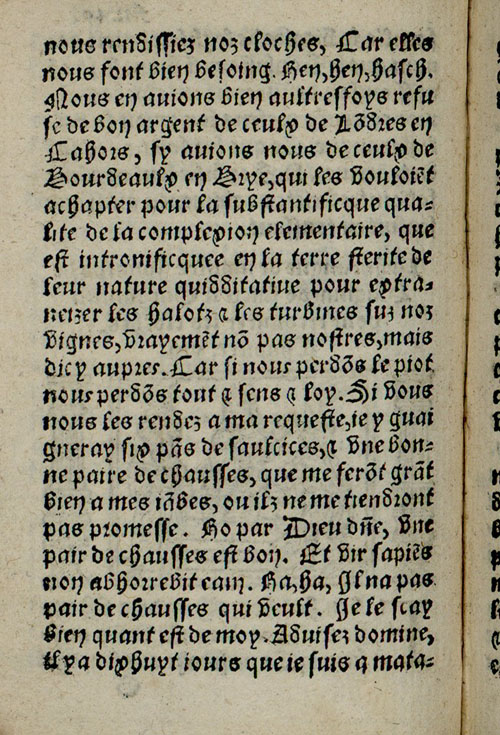 nous rendissiez noz cloches, Car elles
nous font bien besoing. Hen, hen, hasch.
Nous en auions bien aultreffoys refu
se de bon argent de ceulx de Lõdres en
Cahors, sy auions nous de ceulx de
Bourdeaulx en Brye, qui les vouloiẽt
achapter pour la substantificque qua-
lite de la complexion elementaire, que
est intronificquee en la terre sterite de
leur nature quidditatiue pour extra-
neizer les halotz ⁊ les turbines suz noz
vignes, vrayemẽt nõ pas nostres, mais
dicy aupres. Car si nous perdõs le piot
nous perdõs tout ⁊ sens ⁊ loy. Si vous
nous les rendez a ma requeste, ie y guai
gneray six pãs de saulcices, ⁊ vne bon-
ne paire de chausses, que me ferõt grãt
bien a mes iãbes, ou ilz ne me tiendront
pas promesse. Ho par Dieu dñe, vne
pair de chausses est bon. Et vir sapiẽs
non abhorrebit eam. Ha, ha, Il na pas
pair de chausses qui veult. Je le scay
bien quant est de moy. Aduisez domine,
il y a dixhuyt iours que ie suis a mata-